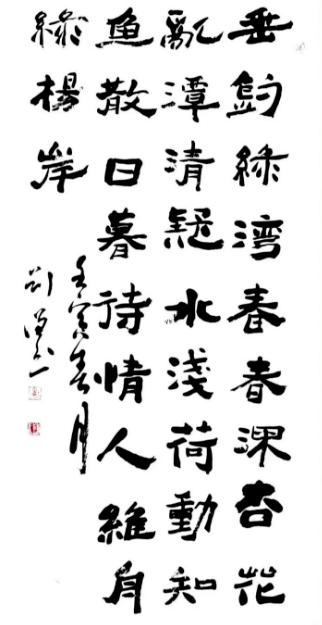 垂釣綠灣春春深杏花
亂潭清疑水淺荷動知
魚散日暮待情人維舟
綠楊岸
壬寅春月
劉